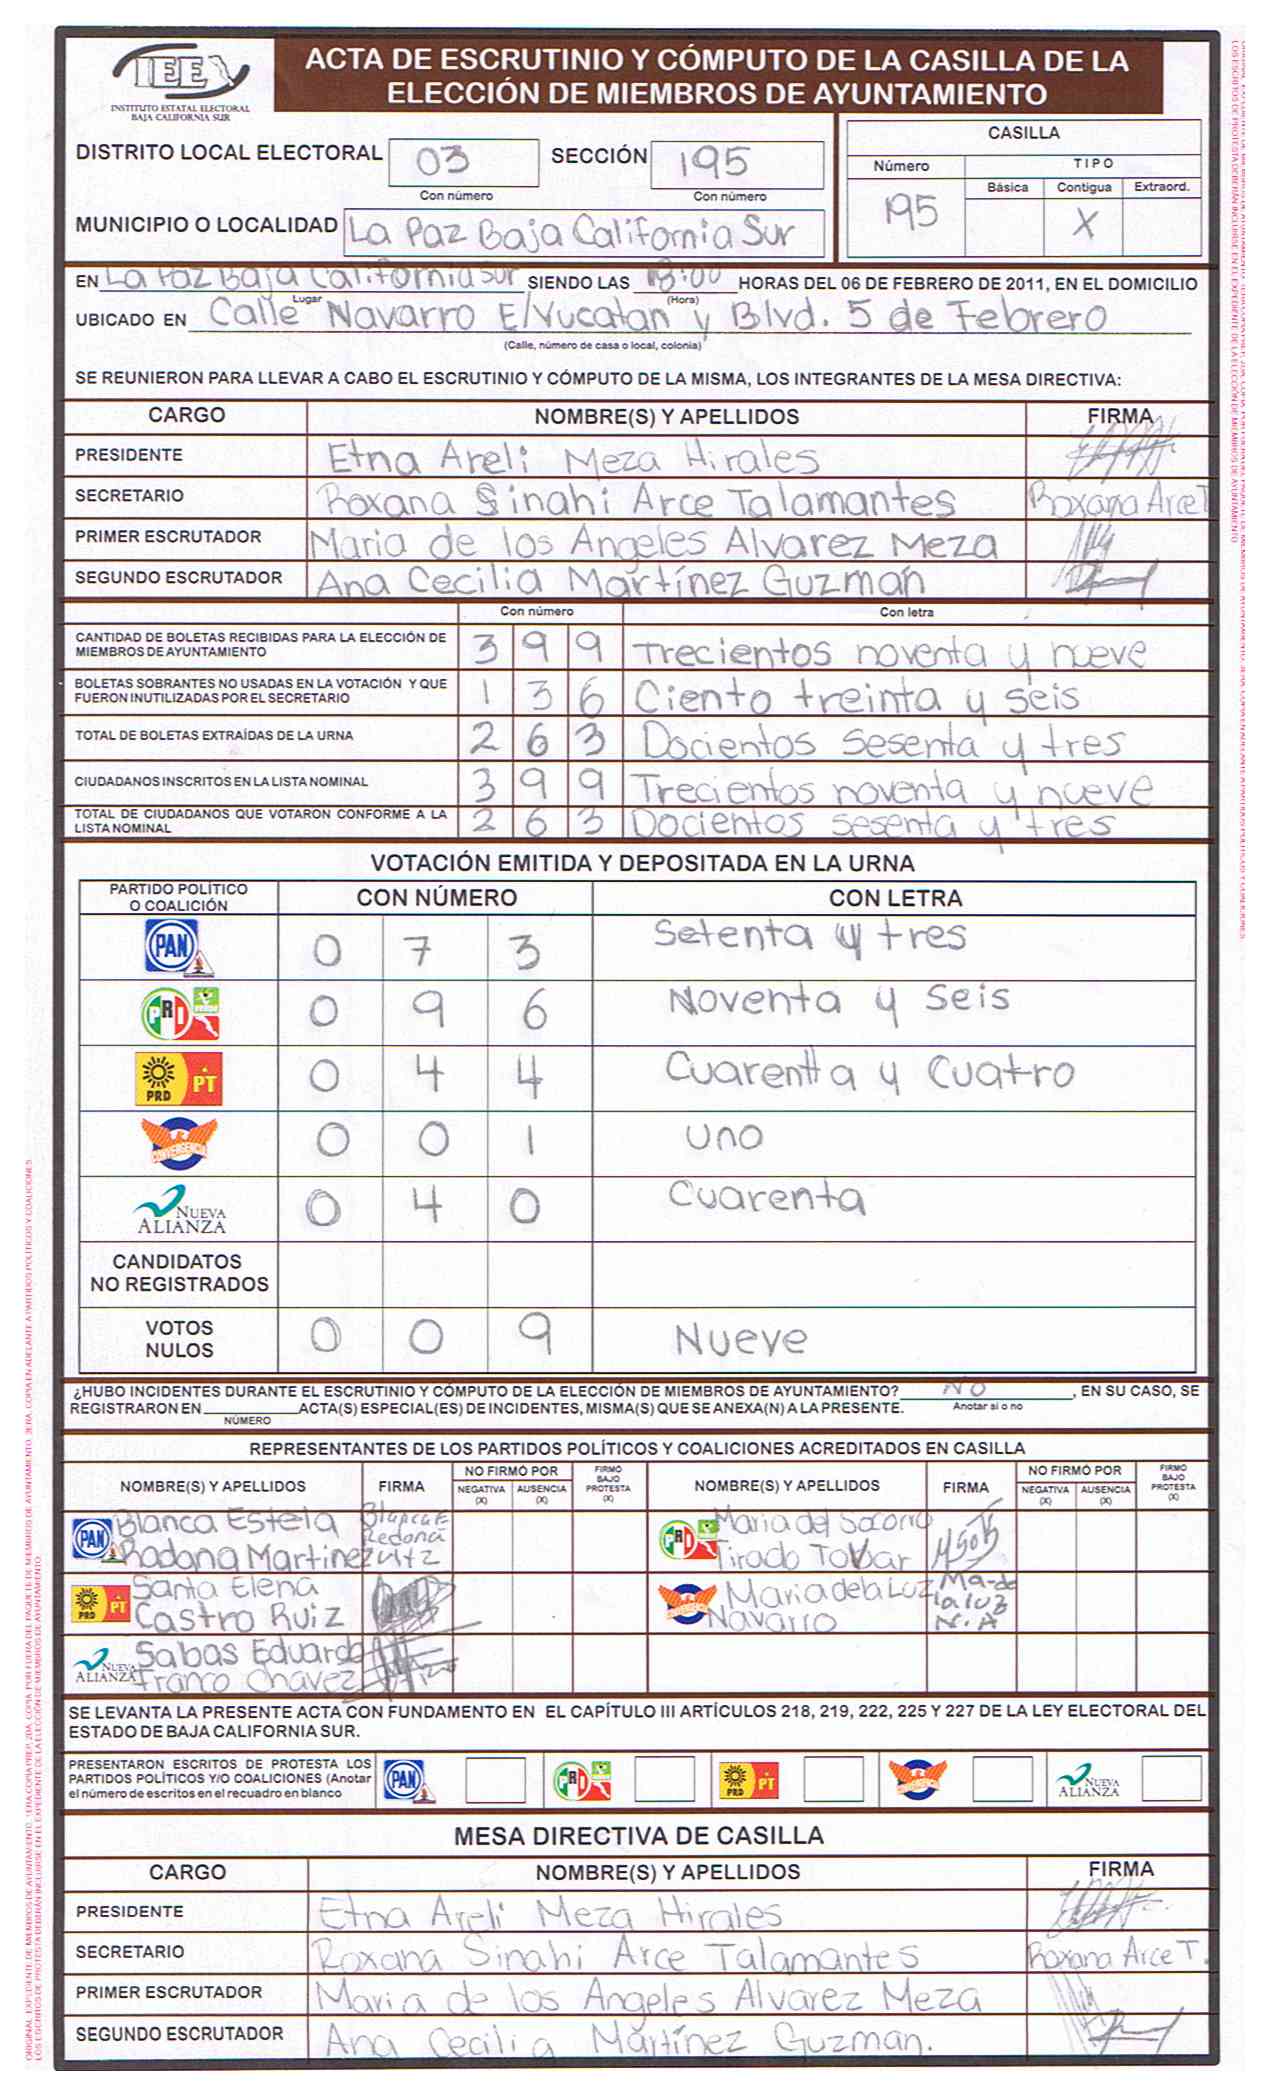 IEE
INSTITUTO ESTATAL ELECTORAL
BAJA CALIFORNIA SUR
ACTA DE ESCRUTINIO Y CÓMPUTO DE LA CASILLA DE LA
ELECCIÓN DE MIEMBROS DE AYUNTAMIENTO
DISTRITO LOCAL ELECTORAL 03 SECCIÓN 195
Con número Con número
MUNICIPIO O LOCALIDAD La Paz Baja California Sur
CASILLA
Número TIPO
Básica Contigua Extraord.
195 X
EN La Paz Baja California Sur SIENDO LAS 18:00 HORAS DEL 06 DE FEBRERO DE 2011, EN EL DOMICILIO
Lugar (Hora)
UBICADO EN Calle Navarro E/Yucatan y Blvd. 5 de Febrero
(Calle, número de casa o local, colonia)
SE REUNIERON PARA LLEVAR A CABO EL ESCRUTINIO Y CÓMPUTO DE LA MISMA, LOS INTEGRANTES DE LA MESA DIRECTIVA:
CARGO NOMBRE(S) Y APELLIDOS FIRMA
PRESIDENTE Etna Areli Meza Hirales
SECRETARIO Roxana Sinahi Arce Talamantes Roxana Arce T
PRIMER ESCRUTADOR Maria de los Angeles Alvarez Meza
SEGUNDO ESCRUTADOR Ana Cecilia Martínez Guzmán
Con número Con letra
CANTIDAD DE BOLETAS RECIBIDAS PARA LA ELECCIÓN DE
MIEMBROS DE AYUNTAMIENTO 3 9 9 Trecientos noventa y nueve
BOLETAS SOBRANTES NO USADAS EN LA VOTACIÓN Y QUE
FUERON INUTILIZADAS POR EL SECRETARIO 1 3 6 Ciento treinta y seis
TOTAL DE BOLETAS EXTRAÍDAS DE LA URNA 2 6 3 Docientos sesenta y tres
CIUDADANOS INSCRITOS EN LA LISTA NOMINAL 3 9 9 Trecientos noventa y nueve
TOTAL DE CIUDADANOS QUE VOTARON CONFORME A LA
LISTA NOMINAL 2 6 3 Docientos sesenta y tres
VOTACIÓN EMITIDA Y DEPOSITADA EN LA URNA
PARTIDO POLÍTICO
O COALICIÓN CON NÚMERO CON LETRA
PAN 0 7 3 Setenta y tres
PRI 0 9 6 Noventa y Seis
PRD PT 0 4 4 Cuarenta y Cuatro
CONVERGENCIA 0 0 1 uno
NUEVA ALIANZA 0 4 0 Cuarenta
CANDIDATOS
NO REGISTRADOS
VOTOS
NULOS 0 0 9 Nueve
¿HUBO INCIDENTES DURANTE EL ESCRUTINIO Y CÓMPUTO DE LA ELECCIÓN DE MIEMBROS DE AYUNTAMIENTO? NO, EN SU CASO, SE
REGISTRARON EN ACTA(S) ESPECIAL(ES) DE INCIDENTES, MISMA(S) QUE SE ANEXA(N) A LA PRESENTE. Anotar si o no
NÚMERO
REPRESENTANTES DE LOS PARTIDOS POLÍTICOS Y COALICIONES ACREDITADOS EN CASILLA
NOMBRE(S) Y APELLIDOS FIRMA NO FIRMÓ POR NEGATIVA (X) AUSENCIA (X) FIRMÓ BAJO PROTESTA (X) NOMBRE(S) Y APELLIDOS FIRMA NO FIRMÓ POR NEGATIVA (X) AUSENCIA (X) FIRMÓ BAJO PROTESTA (X)
PAN Blanca Estela Martinez Blanca E PRI Maria del Socorro
Tirado Tobar
PRD PT Santa Elena
Castro Ruiz
CONVERGENCIA Maria de la Luz
Navarro Ma. de
la luz
N.A
NUEVA ALIANZA Sabas Eduardo
Franco Chavez
SE LEVANTA LA PRESENTE ACTA CON FUNDAMENTO EN EL CAPÍTULO III ARTÍCULOS 218, 219, 222, 225 Y 227 DE LA LEY ELECTORAL DEL
ESTADO DE BAJA CALIFORNIA SUR.
PRESENTARON ESCRITOS DE PROTESTA LOS
PARTIDOS POLÍTICOS Y/O COALICIONES (Anotar
el número de escritos en el recuadro en blanco
PAN PRI PRD PT CONVERGENCIA NUEVA ALIANZA
MESA DIRECTIVA DE CASILLA
CARGO NOMBRE(S) Y APELLIDOS FIRMA
PRESIDENTE Etna Areli Meza Hirales
SECRETARIO Roxana Sinahi Arce Talamantes Roxana Arce T.
PRIMER ESCRUTADOR Maria de los Angeles Alvarez Meza
SEGUNDO ESCRUTADOR Ana Cecilia Martínez Guzman.